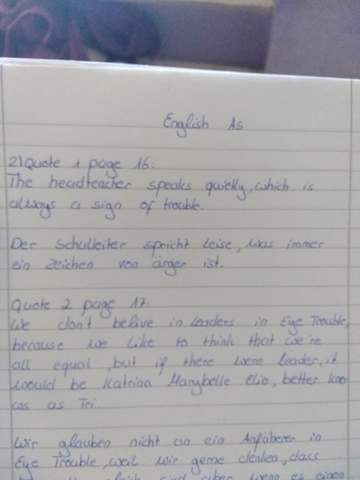 English As
2) Quote 1 page 16:
The headteacher speaks quietly, which is
always a sign of trouble.
Der Schulleiter spricht leise, was immer
ein zeichen von ärger ist.
Quote 2 page 17:
We don't belive in leaders in Eye Trouble,
because we like to think that we're
all equal, but if there were leader, it
would be Katrina Marybelle Elin, better kno
ws as Tri.
Wir glauben nicht an ein Anführer in
Eye Trouble, weil wir gerne denken, dass